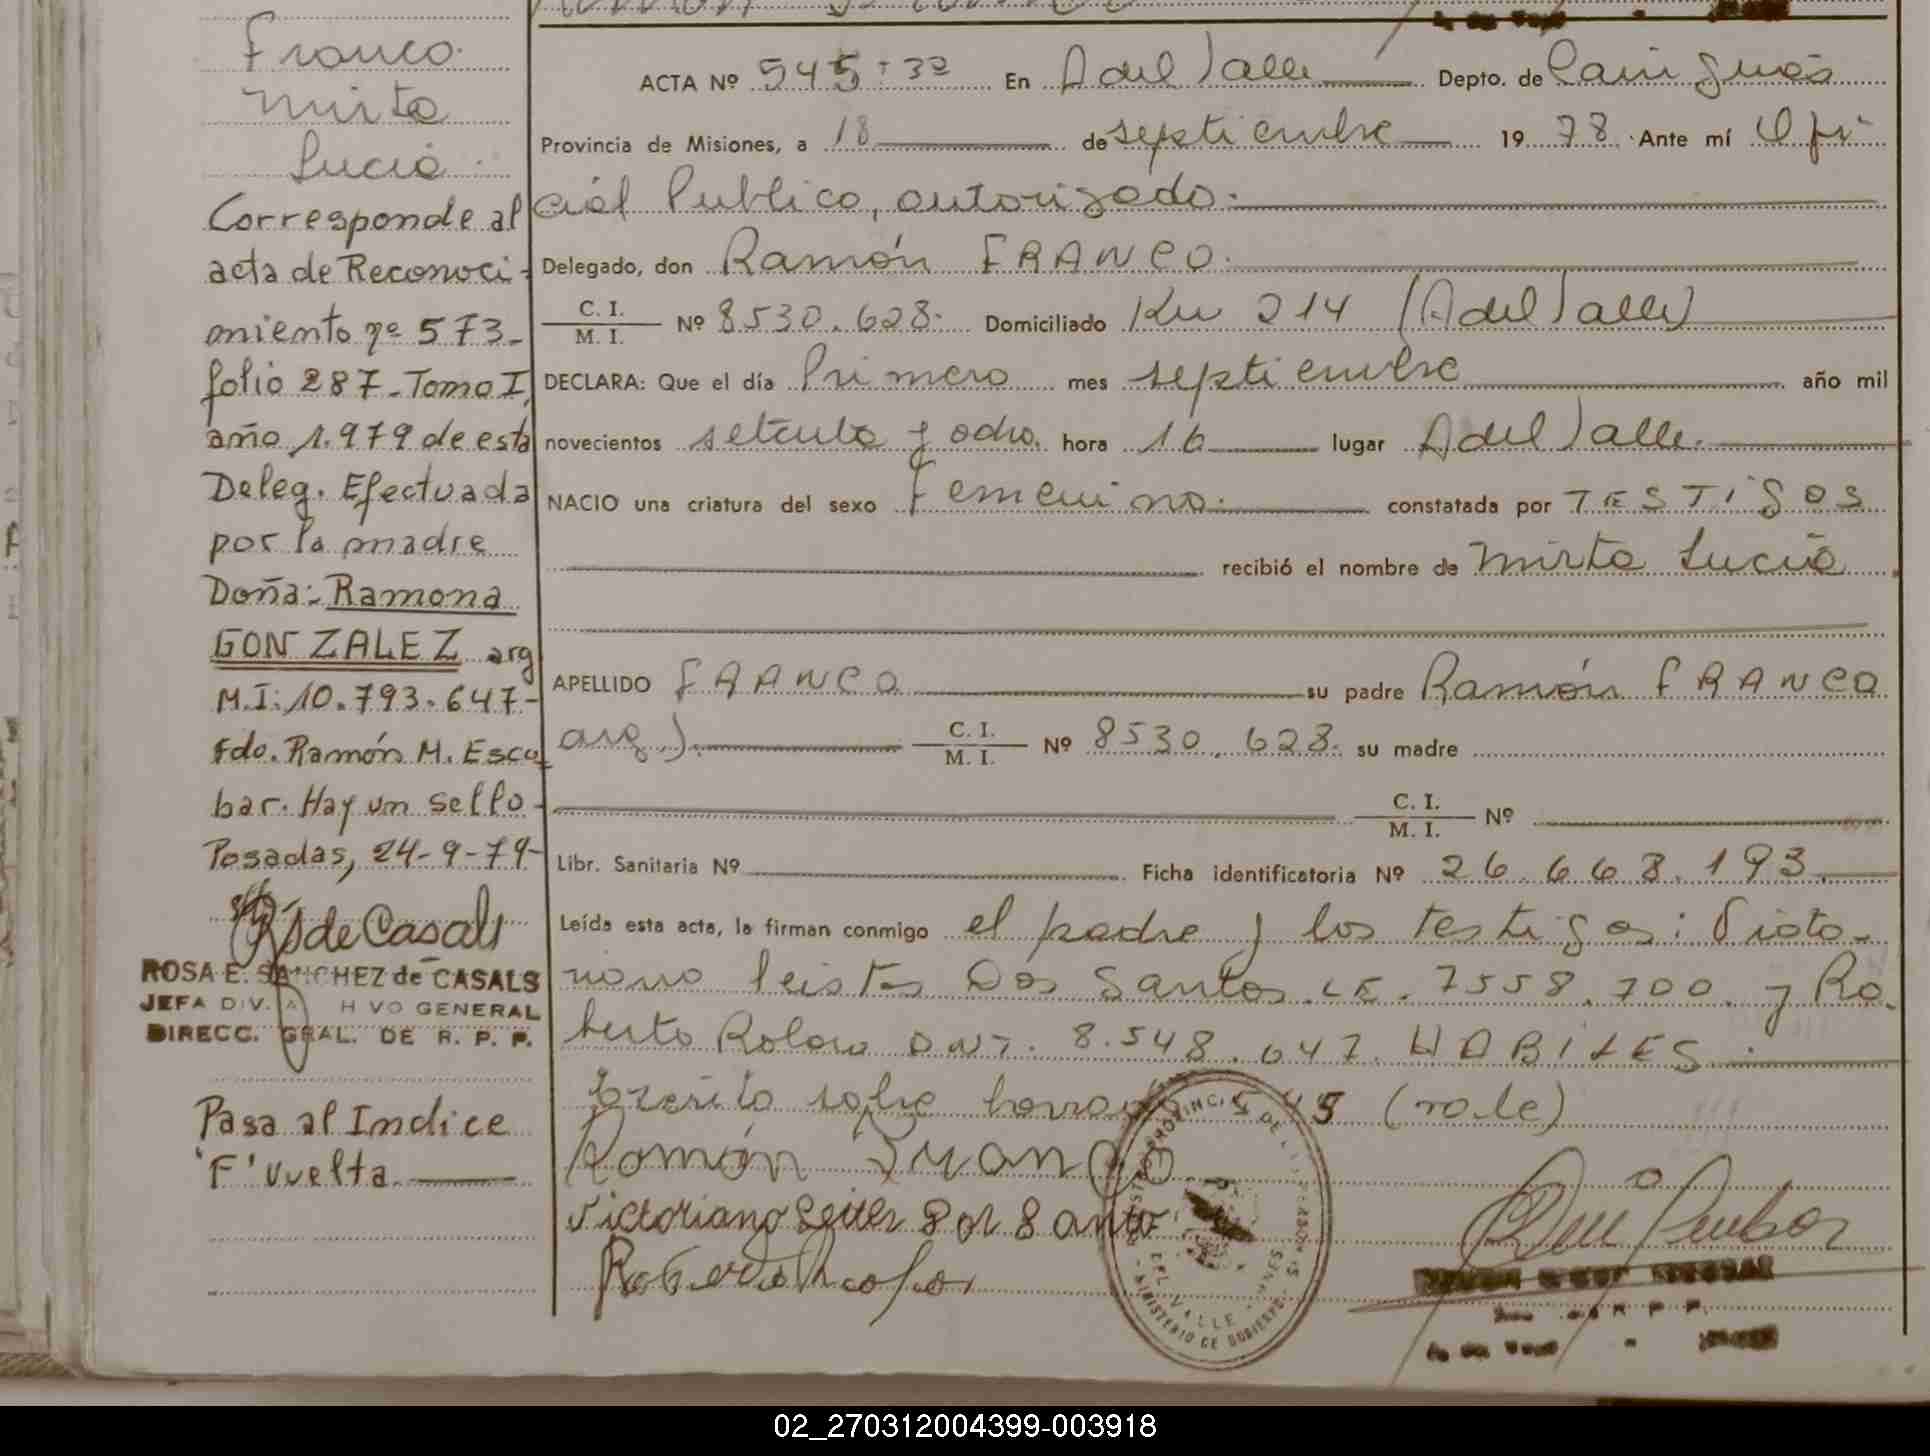 Franco
Mirta
Lucia
Corresponde al
acta de Reconoci-
miento nº 573-
folio 287-Tomo I,
año 1.979 de esta
Deleg. Efectuada
por la madre
Doña:- Ramona
GONZALEZ arg
M.I: 10.793.647-
Fdo. Ramón M. Esco
bar. Hay un sello-
Posadas, 24-9-79-
RSdeCasals
ROSA E. SANCHEZ de CASALS
JEFA DIV. A H VO GENERAL
DIRECC. GRAL. DE R. P. P.
Pasa al Indice
"F" Vuelta.
ACTA Nº 545 En A del Valle Depto. de Cainguás
Provincia de Misiones, a 18 de septiembre 19 78 Ante mí Ofi
cial Publico, autorizado.
Delegado, don Ramón FRANCO.
C. I.
M. I. Nº 8530.628. Domiciliado Km 214 (A del Valle)
DECLARA: Que el día Primero mes septiembre año mil
novecientos setenta y ocho. hora 16 lugar A del Valle.
NACIO una criatura del sexo Femenino. constatada por TESTIGOS
recibió el nombre de Mirta Lucia
APELLIDO FRANCO su padre Ramón FRANCO
arg.). C. I.
M. I. Nº 8530.628. su madre
C. I.
M. I. Nº
Libr. Sanitaria Nº Ficha identificatoria Nº 26.668.193.
Leída esta acta, la firman conmigo el padre y los testigos: Victo-
riano Leistes Dos Santos. LE. 7558.700. y Ro
berto Rolon DNI. 8.548.647. HABILES.
Escrito sobre borrado 545 (vale)
Ramón Franco
Victoriano Dos Santo
Roberto
PROVINCI DE
DEL VALLE
MINISTERIO DE GOBIERNO
02_270312004399-003918